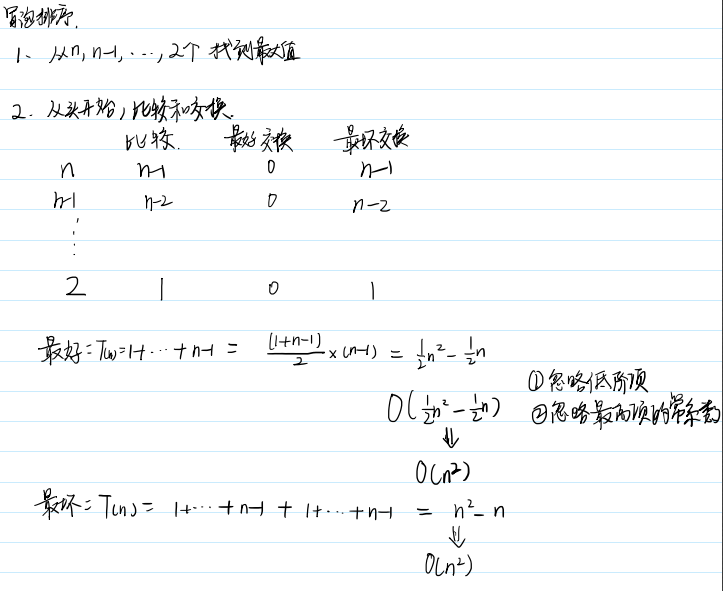 冒泡排序.
1、从n, n-1, ···, 2个 找到最大值
2. 从头开始, 比较和交换.
比较. 最好交换 最坏交换
n n-1 0 n-1
n-1 n-2 0 n-2
⋮
2 1 0 1
最好: T(n)=1+···+n-1 = (1+n-1)/2 ×(n-1) = 1/2 n² - 1/2 n
①忽略低阶项
O(1/2 n² - 1/2 n) ②忽略最高项的常系数
⇓
O(n²)
最坏: T(n) = 1+···+n-1 + 1+···+n-1 = n² - n
⇓
O(n²)